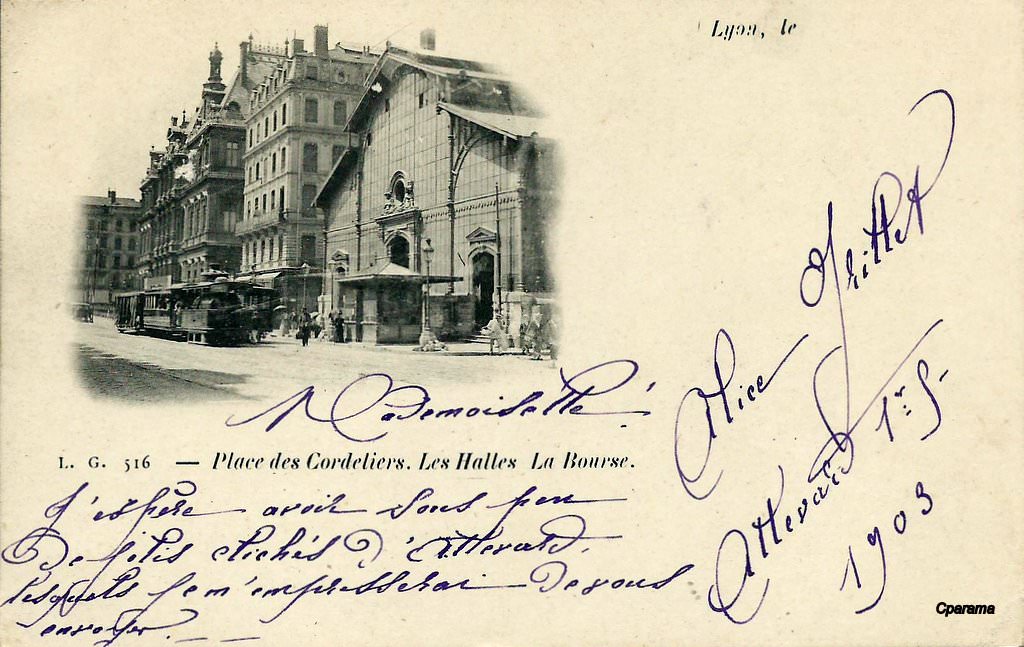 Lyon, le
Mademoiselle
L. G. 516 — Place des Cordeliers. Les Halles La Bourse.
J'espère avoir sous peu
De jolis clichés D'Allevard.
lesquels je m'empresserai De vous
envoyer.
Alice
Allevard 1er S-
1903
Cparama